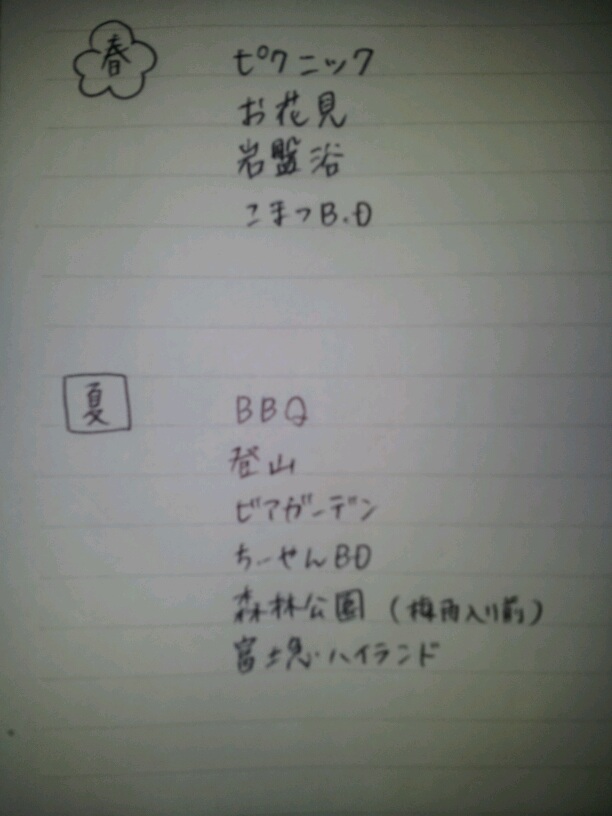 春
ピクニック
お花見
岩盤浴
こまつB.D
夏
BBQ
登山
ビアガーデン
ちーやんBD
森林公園 (梅雨入り前)
富士急ハイランド